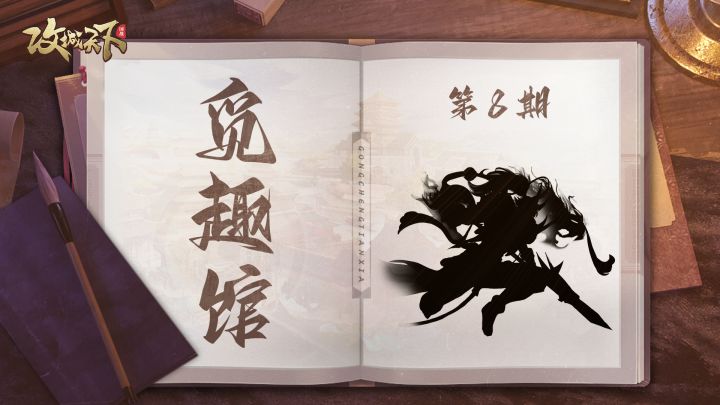 攻城天下
觅趣馆
GONGCHENGTIANXIA
第8期